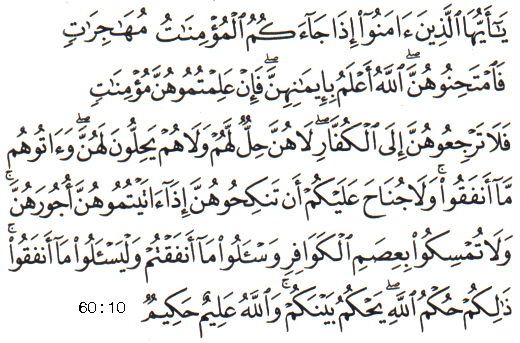 يَـٰٓأَيُّهَا ٱلَّذِينَ ءَامَنُوٓا۟ إِذَا جَآءَكُمُ ٱلْمُؤْمِنَـٰتُ مُهَـٰجِرَٰتٍۢ
فَٱمْتَحِنُوهُنَّ ۖ ٱللَّهُ أَعْلَمُ بِإِيمَـٰنِهِنَّ ۖ فَإِنْ عَلِمْتُمُوهُنَّ مُؤْمِنَـٰتٍۢ
فَلَا تَرْجِعُوهُنَّ إِلَى ٱلْكُفَّارِ ۖ لَا هُنَّ حِلٌّۭ لَّهُمْ وَلَا هُمْ يَحِلُّونَ لَهُنَّ ۖ وَءَاتُوهُم
مَّآ أَنفَقُوا۟ ۚ وَلَا جُنَاحَ عَلَيْكُمْ أَن تَنكِحُوهُنَّ إِذَآ ءَاتَيْتُمُوهُنَّ أُجُورَهُنَّ ۚ
وَلَا تُمْسِكُوا۟ بِعِصَمِ ٱلْكَوَافِرِ وَسْـَٔلُوا۟ مَآ أَنفَقْتُمْ وَلْيَسْـَٔلُوا۟ مَآ أَنفَقُوا۟ ۚ
ذَٰلِكُمْ حُكْمُ ٱللَّهِ ۖ يَحْكُمُ بَيْنَكُمْ ۚ وَٱللَّهُ عَلِيمٌ حَكِيمٌۭ 60:10